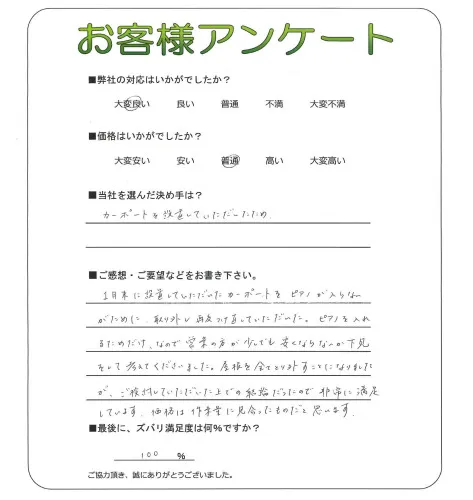 お客様アンケート
■弊社の対応はいかがでしたか？
大変良い 良い 普通 不満 大変不満
■価格はいかがでしたか？
大変安い 安い 普通 高い 大変高い
■当社を選んだ決め手は？
カーポートを設置していただいたため
■ご感想・ご要望などをお書き下さい。
1月末に設置していただいたカーポートを ピアノが入らない
がために、取り外し 再度つけ直していただいた。ピアノを入れ
るためだけ、なので 営業の方が 少しでも 安くならないか下見
をして 考えてくださいました。屋根を全てとり外すことになりました
が、ご検討していただいた上での結論だったので 非常に満足
しています。価格は 作業量に見合ったものだと思います。
■最後に、ズバリ満足度は何％ですか？
100 ％
ご協力頂き、誠にありがとうございました。